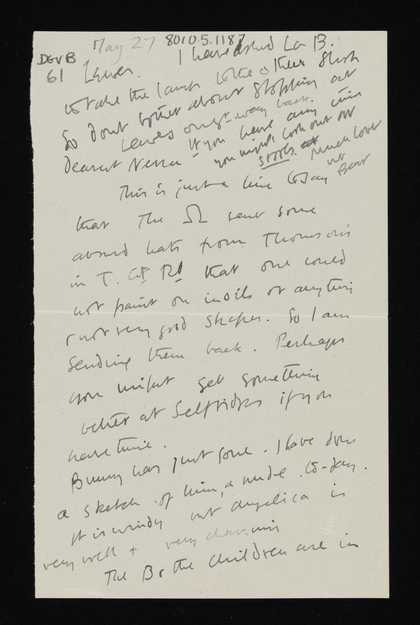 May 27 8010.5.1187
DGVB
61
I have asked La B.
to take the lamp to the other
So dont bother about stopping at
Lewes on yr way back.
If you have any time
you might look out at
stools
much love
yr Bear
Dearest Nessa
This is just a line to say
that The Ω sent some
absurd hats from Thomson's
in T.C. Rd that one could
not paint on in oils or anything
& not very good shapes. So I am
Sending them back. Perhaps
you might get something
better at Selfridges if you
have time.
Bunny has just gone. I have done
a sketch of him, a nude to-day.
It is windy but Angelica is
very well & very charming
The B & the children are in